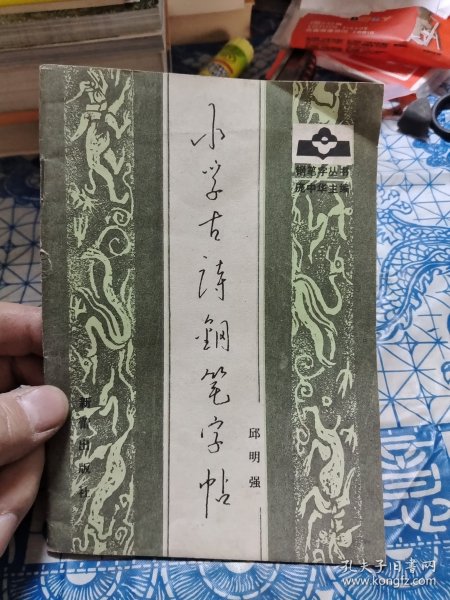 小学古诗钢笔字帖
邱明强
钢笔字丛书
庞中华主编
新蕾出版社
孔夫子旧书网
www.kongfz.com